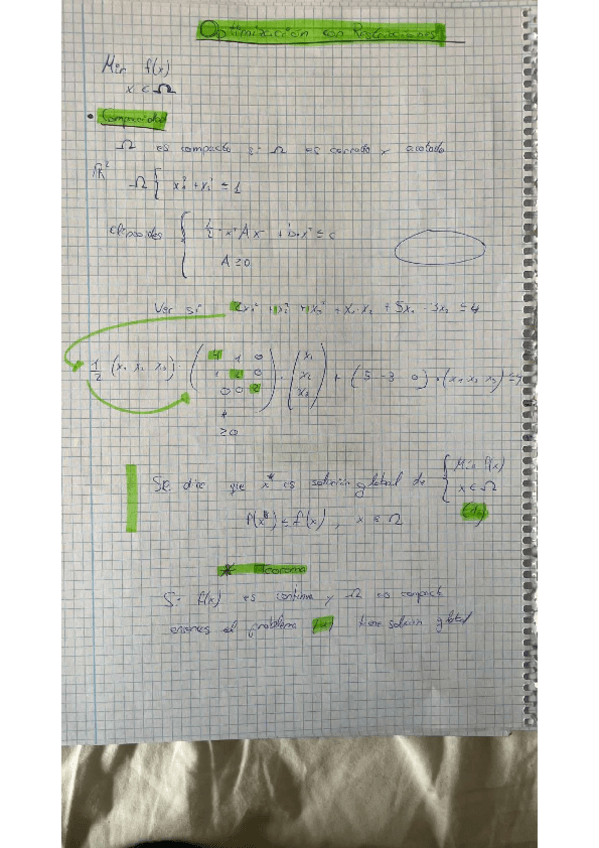 Optimización con Restricciones
Min f(x)
x ∈ Ω
• Compacidad
Ω es compacto si Ω es cerrado y acotado
ℝ² Ω { x₁² + x₂² ≤ 1
elipsoides { 1/2 · xᵗ A x + bᵗ x ≤ c
A ≥ 0
Ver si 2x₁² + x₂² + x₃² + x₁ · x₂ + 5x₁ - 3x₂ ≤ 4
1/2 (x₁ x₂ x₃) · ( 4 1 0
1 2 0
0 0 2 ) · ( x₁
x₂
x₃ ) + (5 -3 0) · (x₁ x₂ x₃) ≤ 4
≥0
Se dice que x* es solución global de { Min f(x)
x ∈ Ω
f(x*) ≤ f(x), x ∈ Ω
* Teorema
Si f(x) es continua y Ω es compacto
entonces el problema tiene solución global